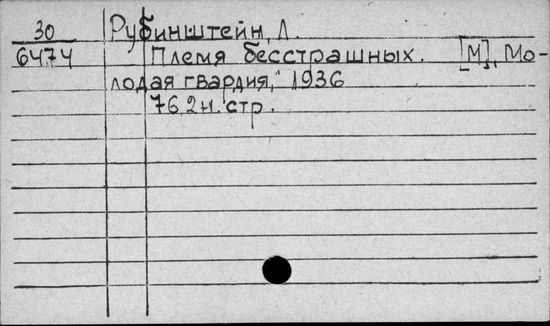 30 Рубинштейн, Л.
6474 Племя бесстрашных. [М], Мо-
лодая гвардия," 1936
76 2н. стр.